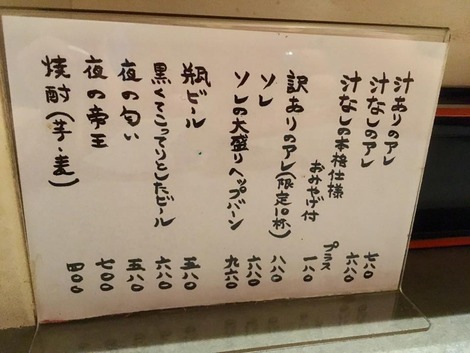 汁ありのアレ 七八〇
汁なしのアレ 六八〇
汁なしの本格仕様
おみやげ付 プラス 一八〇
訳ありのアレ(限定10杯) 八八〇
ソレ 六八〇
ソレの大盛りヘップバーン 九六〇
瓶ビール 五八〇
黒くてこってりとしたビール 六八〇
夜の匂い 五八〇
夜の帝王 七〇〇
焼酎(芋・麦) 四〇〇